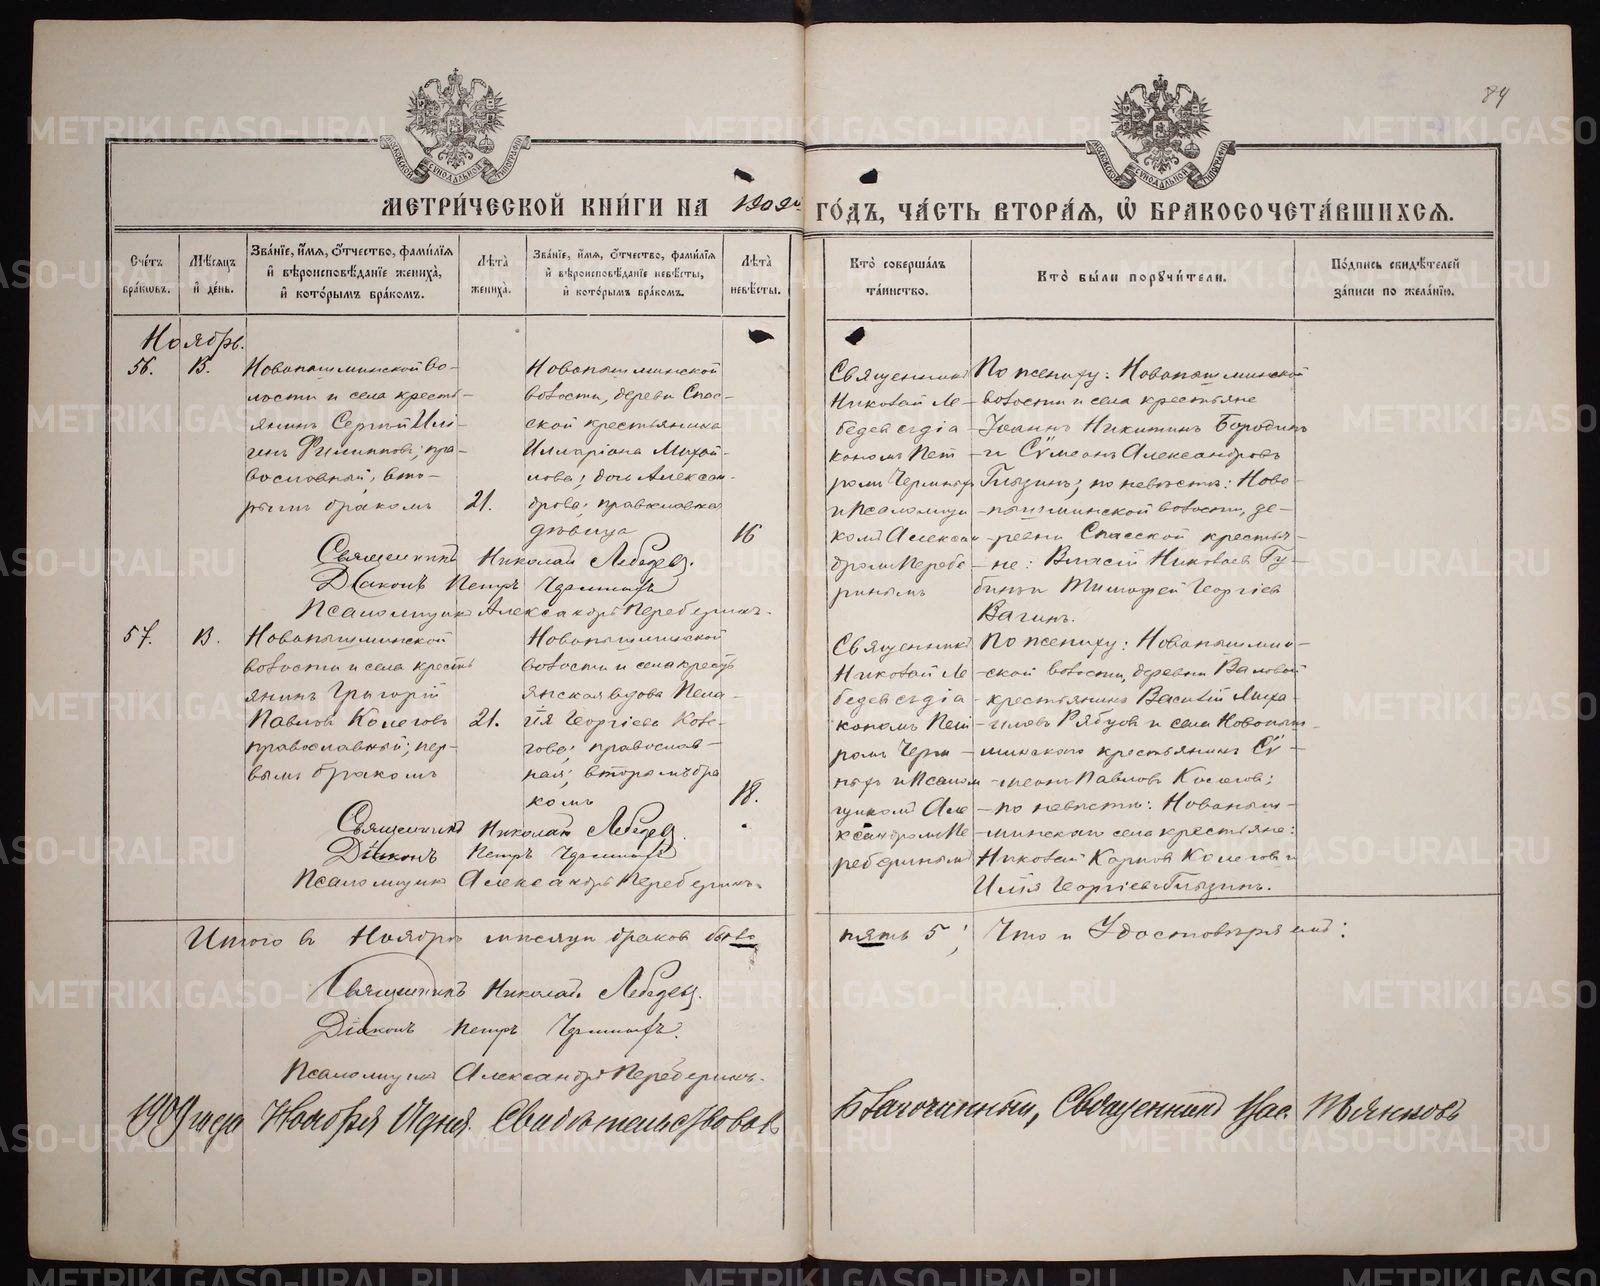 84
МОСКОВСКОЙ СѴНОДАЛЬНОЙ ТИПОГРАФІИ
МОСКОВСКОЙ СѴНОДАЛЬНОЙ ТИПОГРАФІИ
МЕТРИ́ЧЕСКОЙ КНИ́ГИ НА 1909й ГО́ДЪ, ЧА́СТЬ ВТОРА́Я, Ѡ БРАКОСОЧЕТА́ВШИХСЯ.
Сче́тъ бра́ковъ.
Мѣ́сяцъ и҆ де́нь.
Зва́нїе, и҆́мя, ѻ҆́тчество, фами́лїя и҆ вѣроисповѣ́данїе жениха̀, и҆ кото́рымъ бра́комъ.
Лѣта̀ жениха̀.
Зва́нїе, и҆́мя, ѻ҆́тчество, фами́лїя и҆ вѣроисповѣ́данїе невѣ́сты, и҆ кото́рымъ бра́комъ.
Лѣта̀ невѣ́сты.
Кто̀ соверша́лъ та́инство.
Кто̀ бы́ли порꙋчи́тели.
По́дпись свидѣ́телей за́писи по жела́нїю.
Ноябрь.
56.
8.
Новопышминской во-
лости и села кресть-
янинъ Сергій Иль-
инъ Филипповъ; пра-
вославный, вто-
рымъ бракомъ
21.
Новопышминской
волости, деревн Спас-
ской крестьянина
Илларіона Михай-
лова; дочь Алексан-
дрова; православная
дѣвица
16
Священникъ
Николай Ле-
бедевъ съ діа
кономъ Пет
ромъ Черныхъ
и Псаломщи
комъ Алексан
дромъ Перебе-
ринымъ
По жениху: Новопышминской
волости и села крестьяне
Іоаннъ Никитинъ Бородинъ
и Сѵмеонъ Александровъ
Глызинъ; по невѣсте: Ново-
пышминской волости, де-
ревни Спасской крестья-
не: Власій Николаевъ Гу-
бинъ и Тимофей Георгіевъ
Вагинъ.
Священникъ Николай Лебедевъ.
Діаконъ Петръ Черныхъ
Псаломщикъ Александръ Переберинъ.
57.
8.
Новопышминской
волости и села кресть
янинъ Григорій
Павловъ Колеговъ
православный; пер-
вымъ бракомъ
21.
Новопышминской
волости и села кресть
янская вдова Пела-
гія Георгіева Коле-
гова; православ-
ная; вторымъ бра
комъ
18.
Священникъ
Николай Ле
бедевъ съ діа
кономъ Пет-
ромъ Чер
ныхъ и Псалом
щикомъ Але
ксандромъ Пе
реберинымъ
По жениху: Новопышмин-
ской волости, деревни Валовой
крестьянинъ Василій Миха-
иловъ Рябцовъ и села Новопыш-
минскаго крестьянинъ Сѵ-
меонъ Павловъ Колеговъ;
по невѣсте: Новопыш-
минскаго села крестьяне:
Николай Карповъ Колеговъ и
Илія Георгіевъ Глызинъ.
Священникъ Николай Лебедевъ.
Діаконъ Петръ Черныхъ
Псаломщикъ Александръ Переберинъ.
Итого въ Ноябрѣ месяцѣ браковъ было пять 5; Что и Удостовѣряемъ:
Священникъ Николай Лебедевъ.
Діаконъ Петръ Черныхъ.
Псаломщикъ Александръ Переберинъ.
1909 года Ноября дня. Свидѣтельствовалъ Благочинный, Священникъ